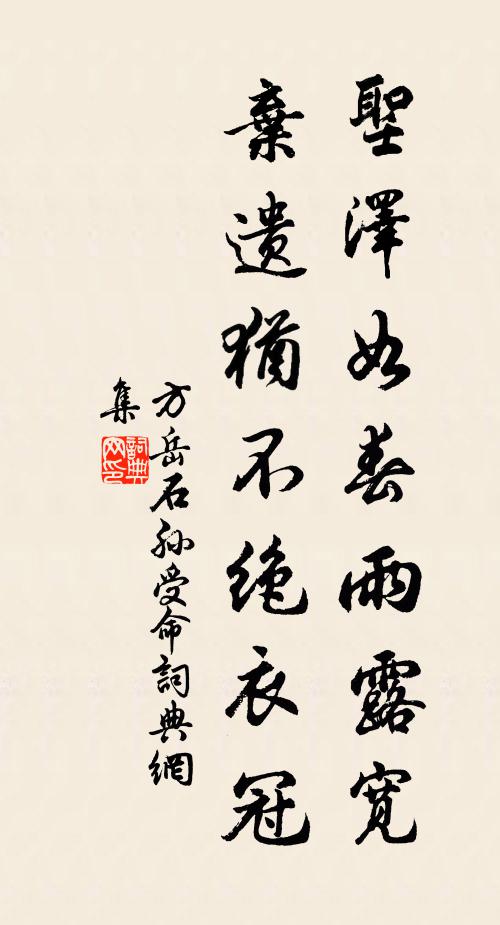 聖澤如春雨露寬
棄遺猶不絕衣冠
方岳石孫受命詞典網
集
詞典
网印